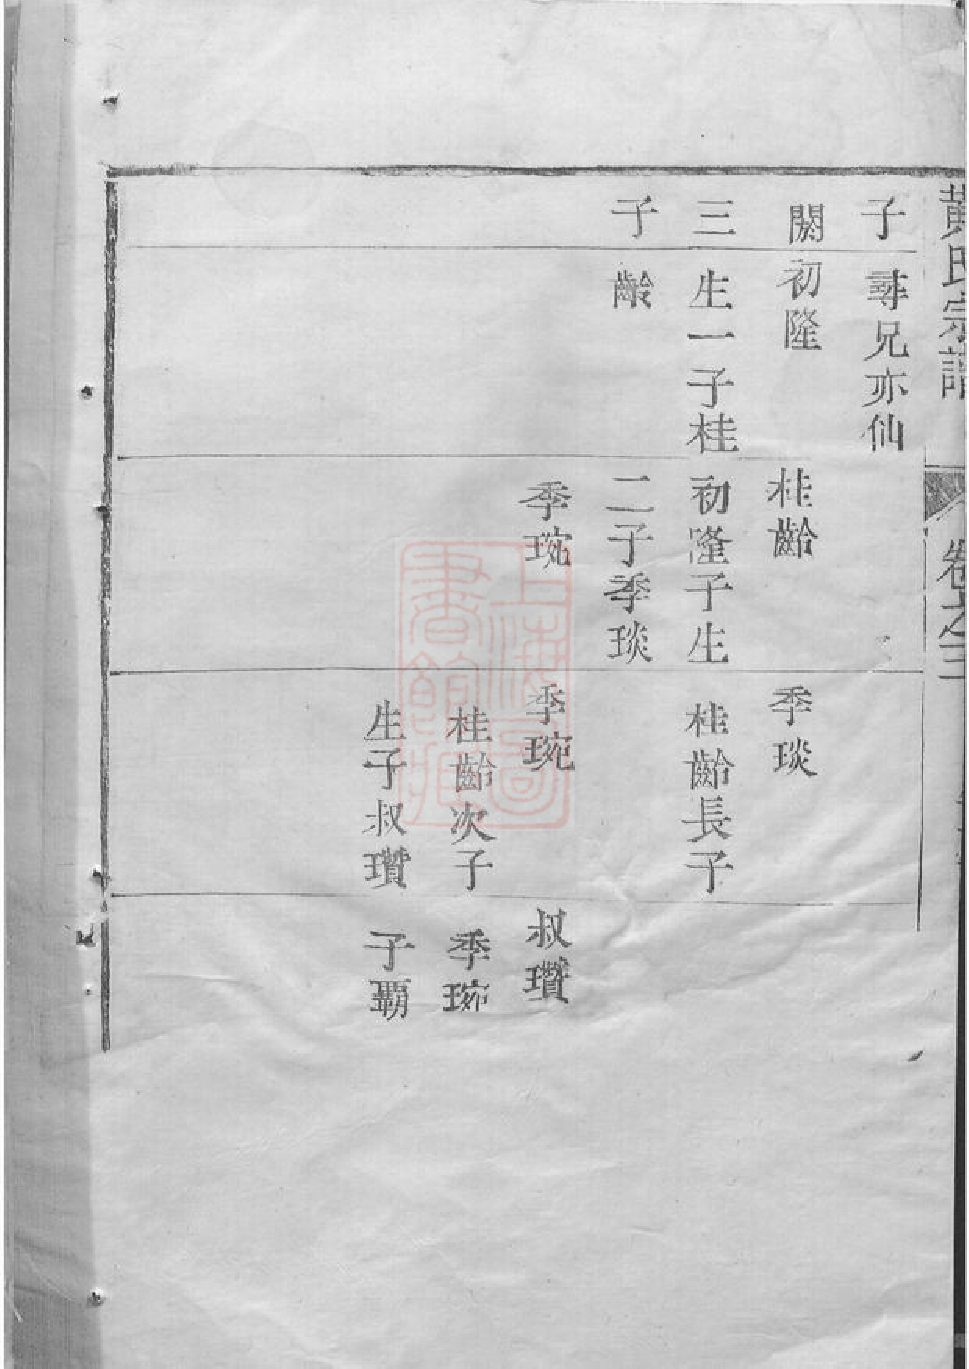 黃氏宗譜
卷之三
子
三
子
尋兄亦仙
初隆
生一子桂
齡
桂齡
初隆子生
二子季琰
季琬
季琰
桂齡長子
季琬
桂齡次子
生子叔瓚
叔瓚
季琬
子覇
上海圖
書館藏